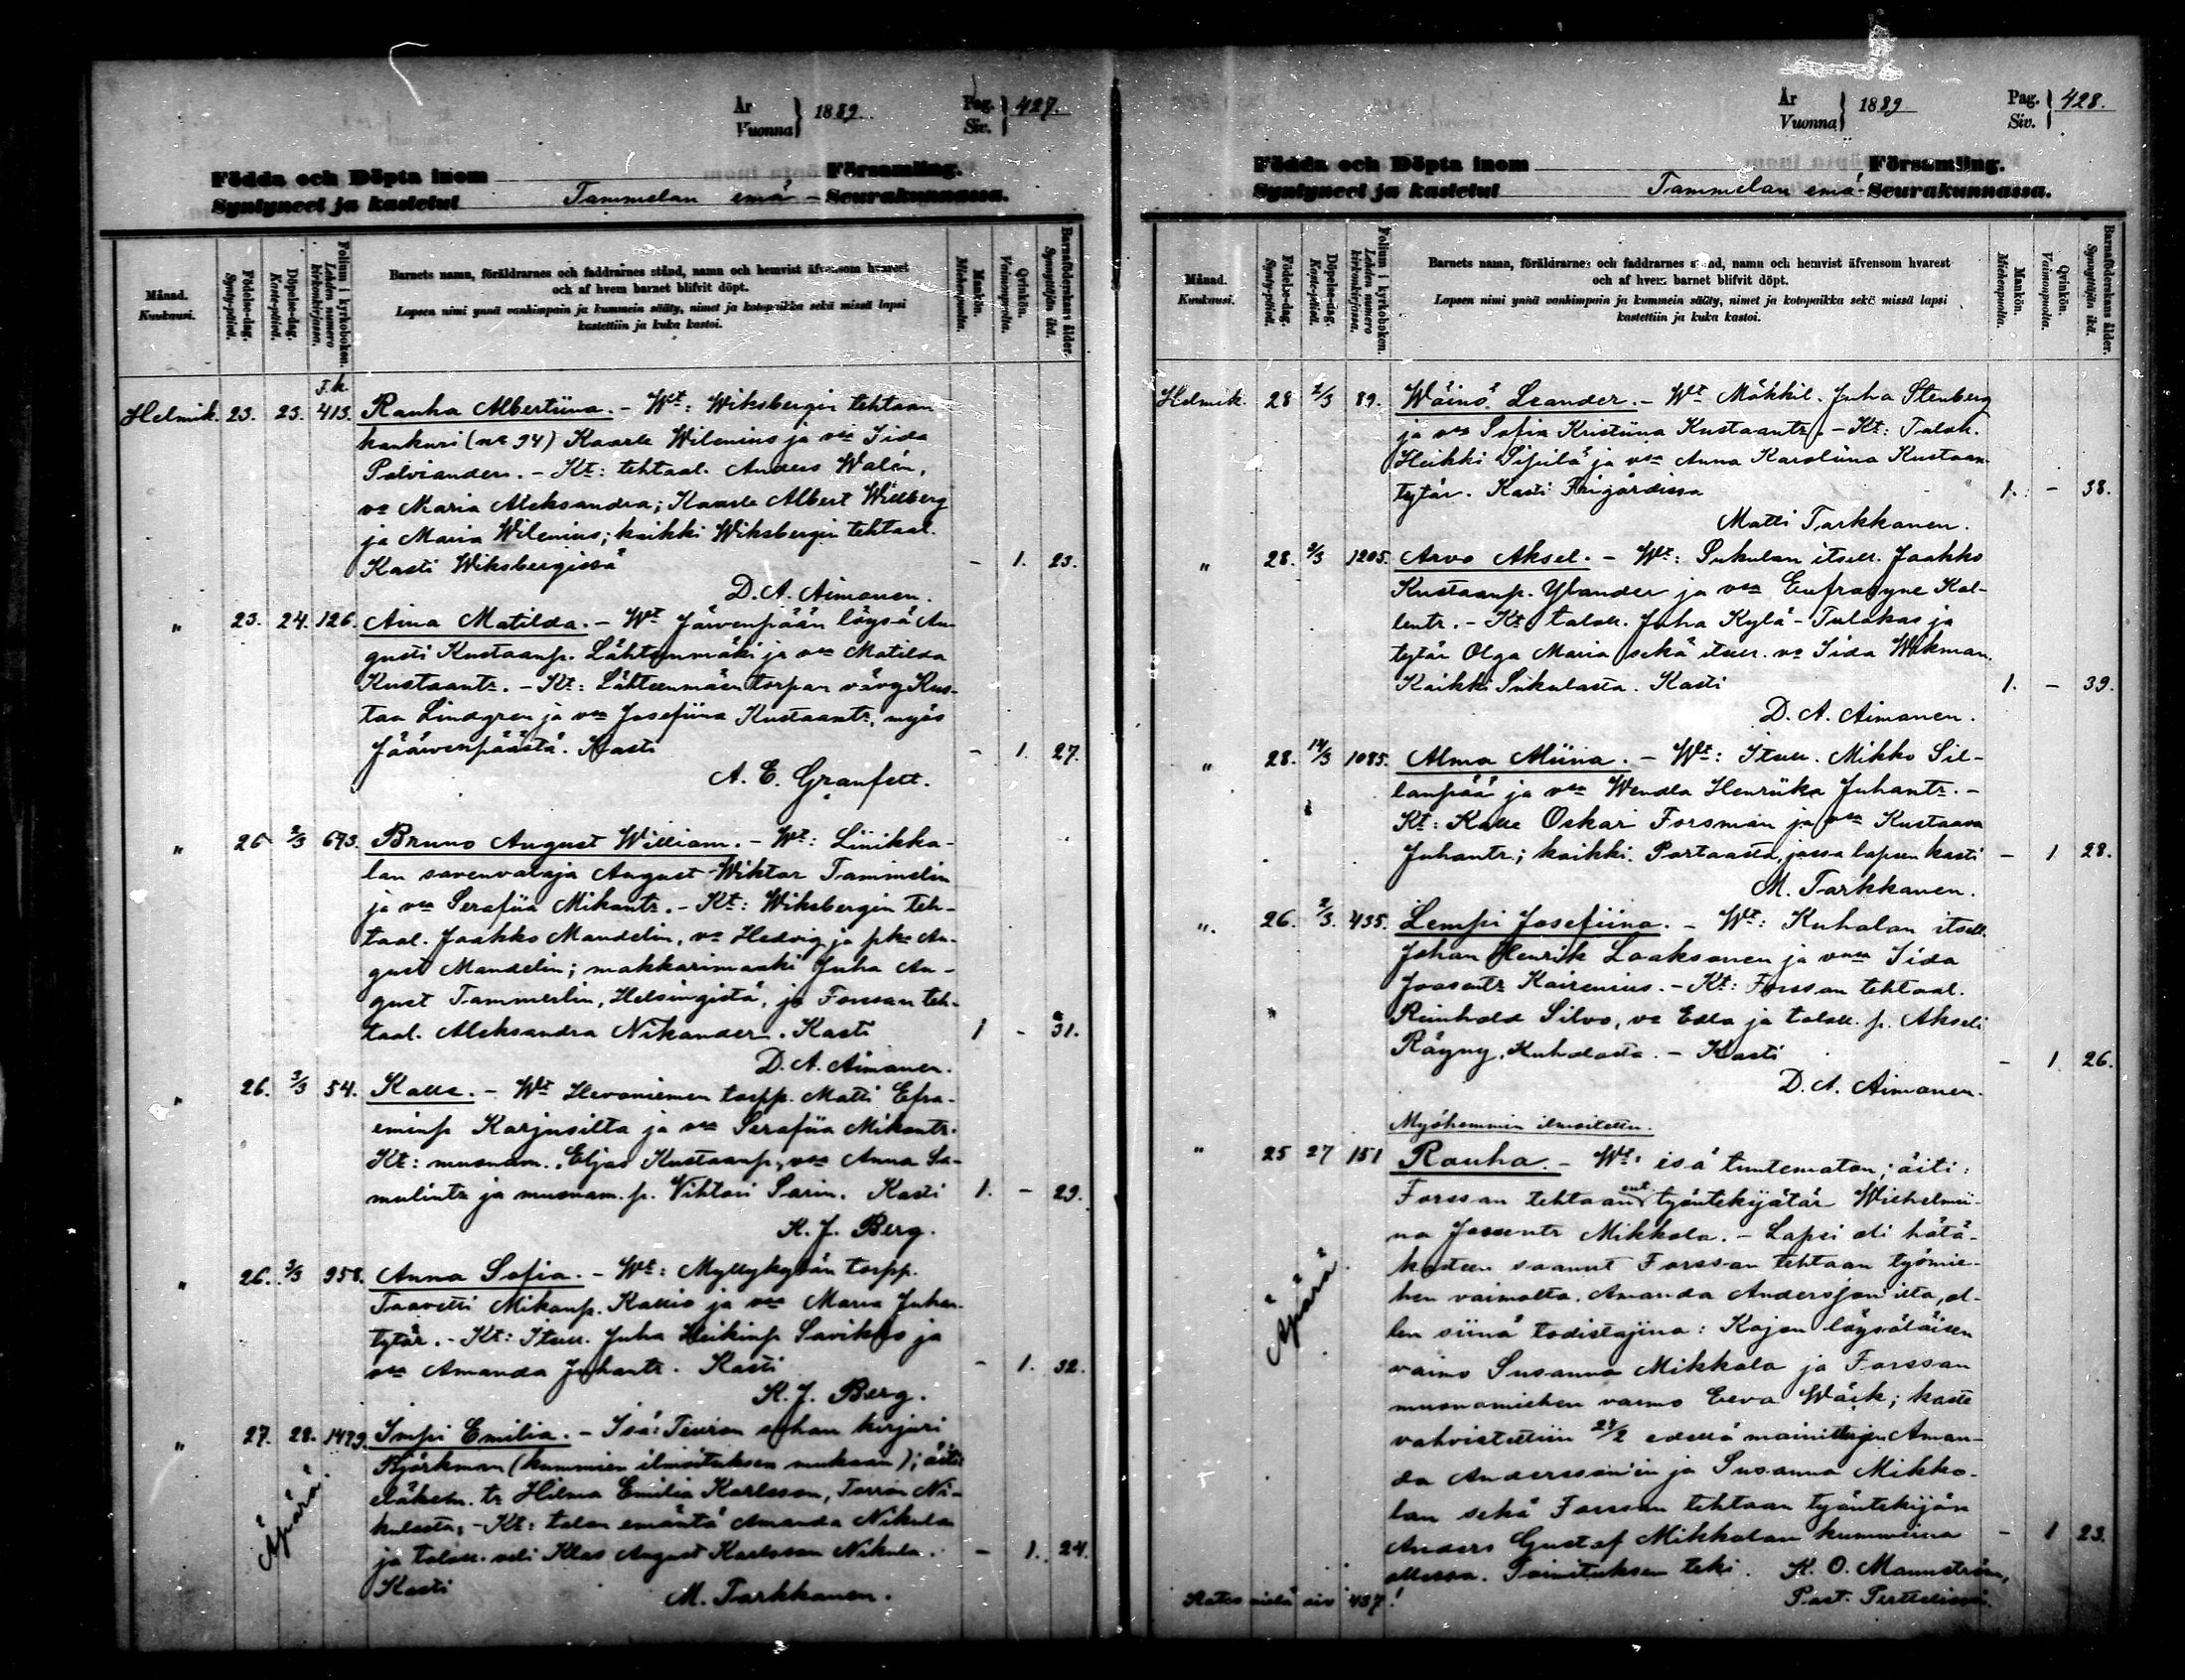 År
Vuonna } 1889.
Pag.
Siv. } 427.
Födda och Döpta inom Församling.
Syntyneet ja kastetut Tammelan emä- Seurakunnassa.
Månad.
Kuukausi.
Födelse-dag.
Synty-päivä.
Döpelse-dag.
Kaste-päivä.
Folium i kyrkoboken.
Lehden numero kirkonkirjassa.
Barnets namn, föräldrarnes och faddrarnes stånd, namn och hemvist äfvensom hvarest
och af hvem barnet blifvit döpt.
Lapsen nimi ynnä vanhimpain ja kummein sääty, nimet ja kotopaikka sekä missä lapsi
kastettiin ja kuka kastoi.
Mankön.
Miehenpuolta.
Qvinkön.
Vaimonpuolta.
Barnaföderskans ålder.
Synnyttäjän ikä.
T.k.
Helmik. 23. 23. 413. Rauha Albertiina. - Wt: Wiksbergin tehtaan
kankuri (no 94) Kaarle Wilenius ja vsa Iida
Palviander. - Kt: tehtaal. Anders Walén,
vo Maria Aleksandra; Kaarle Albert Willberg
ja Maria Wilenius; kaikki Wiksbergin tehtaal.
Kasti Wiksbergissä - 1. 23.
D. A. Aimonen.
" 23. 24. 126. Aina Matilda. - Wt Järvenpään löysä Au-
gusti Kustaanp. Lähteenmäki ja vsa Matilda
Kustaantr. - Kt: Lähteenmäen torpan vävy Kus-
taa Lindgren ja vsa Josefiina Kustaantr, myös
Jäärvenpäästä. Kasti - 1. 27.
A. E. Granfelt.
" 26 2/3 673. Bruno August William. - Wt: Liinikka-
lan savenvalaja August Wiktor Tammelin
ja vsa Serafiia Mikontr. - Kt: Wiksbergin teh-
taal. Jaakko Mandelin, vo Hedvig ja pka Au-
gust Mandelin; makkarimaaki Juha Au-
gust Tammerlin, Helsingistä, ja Forssan teh-
taal. Aleksandra Nikander. Kasti 1 - 31.
D. A. Aimonen.
" 26. 3/3 54. Kalle. - Wt Hevoniemen torpp. Matti Efra-
eminp Karjusilta ja vsa Serafiia Mikontr.
Kt: muonam. Eljas Kustaanp, vsa Anna Sa-
mulintr ja muonam. p. Vihtori Sarin. Kasti 1. - 29.
K. J. Berg.
" 26. 3/3 958. Anna Sofia. - Wt: Myllykylän torpp.
Taavetti Mikonp. Kallio ja vsa Maria Juhan-
tytär. - Kt: Itsell. Juha Heikinp Savikko ja
vsa Amanda Juhantr. Kasti - 1. 32.
K. J. Berg.
" 27. 28. 1479. Impi Emilia. - Isä: Teuron sahan kirjuri
Björkman (kummien ilmoituksen mukaan); äiti:
eläkem. tr Hilma Emilia Karlsson, Torron Ni-
kulasta. - Kt: talon emäntä Amanda Nikula
ja talon. veli Klas August Karlsson Nikula. - 1. 24.
Äpärä
Kasti
M. Tarkkanen.
År
Vuonna } 1889
Pag.
Siv. } 428.
Födda och Döpta inom Församling.
Syntyneet ja kastetut Tammelan emä- Seurakunnassa.
Månad.
Kuukausi.
Födelse-dag.
Synty-päivä.
Döpelse-dag.
Kaste-päivä.
Folium i kyrkoboken.
Lehden numero kirkonkirjassa.
Barnets namn, föräldrarnes och faddrarnes stånd, namn och hemvist äfvensom hvarest
och af hvem barnet blifvit döpt.
Lapsen nimi ynnä vanhimpain ja kummein sääty, nimet ja kotopaikka sekä missä lapsi
kastettiin ja kuka kastoi.
Mankön.
Miehenpuolta.
Qvinkön.
Vaimonpuolta.
Barnaföderskans ålder.
Synnyttäjän ikä.
Helmik. 28 2/3 89. Wäinö Leander. - Wt Mökkil. Juha Stenberg
ja vsa Sofia Kristiina Kustaantr. - Kt: Talok.
Heikki Sipilä ja vsa Anna Karoliina Kustaan-
tytär. Kasti 1. - 38.
Matti Tarkkanen.
" 28. 9/3 1205. Arvo Aksel. - Wt: Sukulan itsell. Jaakko
Kustaanp. Ylander ja vsa Eufrosyne Kal-
lentr. - Kt talok. Juha Kylä-Tulokas ja
tytär Olga Maria sekä itsell. vo Iida Wikman.
Kaikki Sukulasta. Kasti 1. - 39.
D. A. Aimonen.
" 28. 14/3 1085. Alma Miina. - Wt: Itsell. Mikko Sil-
lanpää ja vsa Wendla Henriika Juhantr. -
Kt: Kalle Oskar Forsman ja vsa Kustaava
Juhantr; kaikki Portaasta, jossa lapsen kasti - 1 28.
M. Tarkkanen.
" 26. 2/3. 435. Lempi Josefiina. - Wt: Kuhalan itsell.
Johan Henrik Laaksonen ja vsa Iida
Joosentr Kairenius. - Kt: Forssan tehtaal.
Reinhold Silvo, vo Edla ja talok. p. Akseli
Räyny, Kuhalasta. - Kasti - 1 26.
D. A. Aimonen.
Myöhemmin ilmoitettu.
" 25 27 151 Rauha. - Wt: isä tuntematon; äiti:
Forssan tehtaan ent työntekijätär Wilhelmii-
na Joosentr Mikkola. - Lapsi oli hätä-
kasteen saanut Forssan tehtaan työmie-
hen vaimolta Amanda Andersson'ilta, ol-
len siinä todistajina: Kojon löysäläisen
vaimo Susanna Mikkola ja Forssan
muonamiehen vaimo Eeva Wäik; kaste
vahvistettiin 27/2 edellä mainittujen Aman-
da Andersson'in ja Susanna Mikko-
lan sekä Forssan tehtaan työntekijän
Anders Gustaf Mikkolan kummeina - 1 23.
ollessa. Toimituksen teki K. O. Mannström,
Äpärä
Past. Perttelissä.
Katso vielä siv 437!